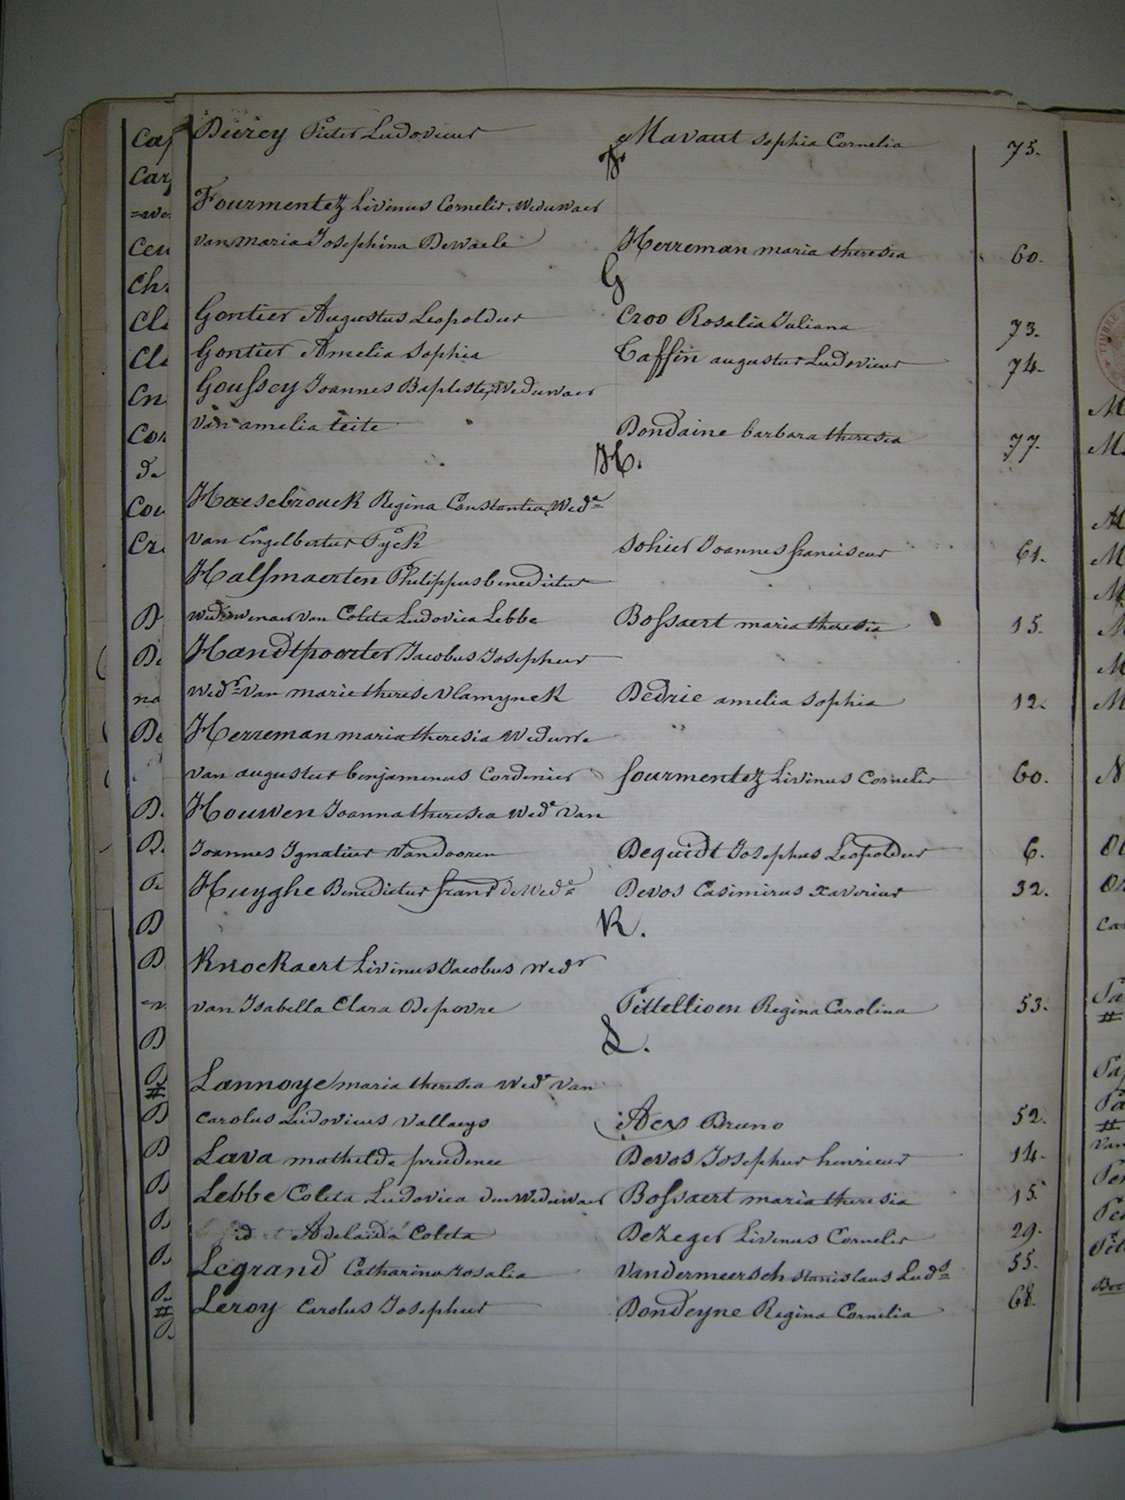 Durcy Pieter Ludovicus Mavaut Sophia Cornelia 75.
F.
Fourmentez Livinus Cornelis, Weduwaer
van maria Josephina Dewaele Herreman maria theresia 60.
G
Gontier Augustus Leopoldus Croo Rosalia Juliana 73.
Gontier Amelia Sophia Caffin augustus Ludovicus 74.
Goussey Joannes Baptiste, Weduwaer
van amelia teite Dondaine barbara theresia 77.
H.
Haesebrouck Regina Constantia, Wedᵉ
van Engelbertus Fyck Sohier Joannes franciscus 61.
Halsmaerten Philippus benedictus
weduwenaer van Coleta Ludovica Lebbe Bossaert maria theresia 15.
Handtpoorter Jacobus Josephus
Wedʳ van marie therese Vlamynck Dedrie amelia Sophia 12.
Herreman maria theresia Weduwe
van augustus benjaminus Cordenier fourmentez Livinus Cornelis 60.
Houwen Joanna theresia Wedᵉ van
Joannes Ignatius Vandooren Dequidt Josephus Leopoldus 6.
Huyghe Benedictus Devos Casimirus Xaverius 32.
K.
Knockaert Livinus Jacobus Wedʳ
van Isabella Clara Depovre Pittellioen Regina Carolina 53.
L.
Lannoye maria theresia Wedᵉ van
Carolus Ludovicus Vallaeys Aex Bruno 52.
Lava mathilde prudence Devos Josephus henricus 14.
Lebbe Coleta Ludovica den Weduwaer Bossaert maria theresia 15.
id Adelaida Coleta DeZeger Livinus Cornelis 29.
Legrand Catharina Rosalia Vandermeersch Stanislaus Ludˢ 55.
Leroy Carolus Josephus Dondeyne Regina Cornelia 68.